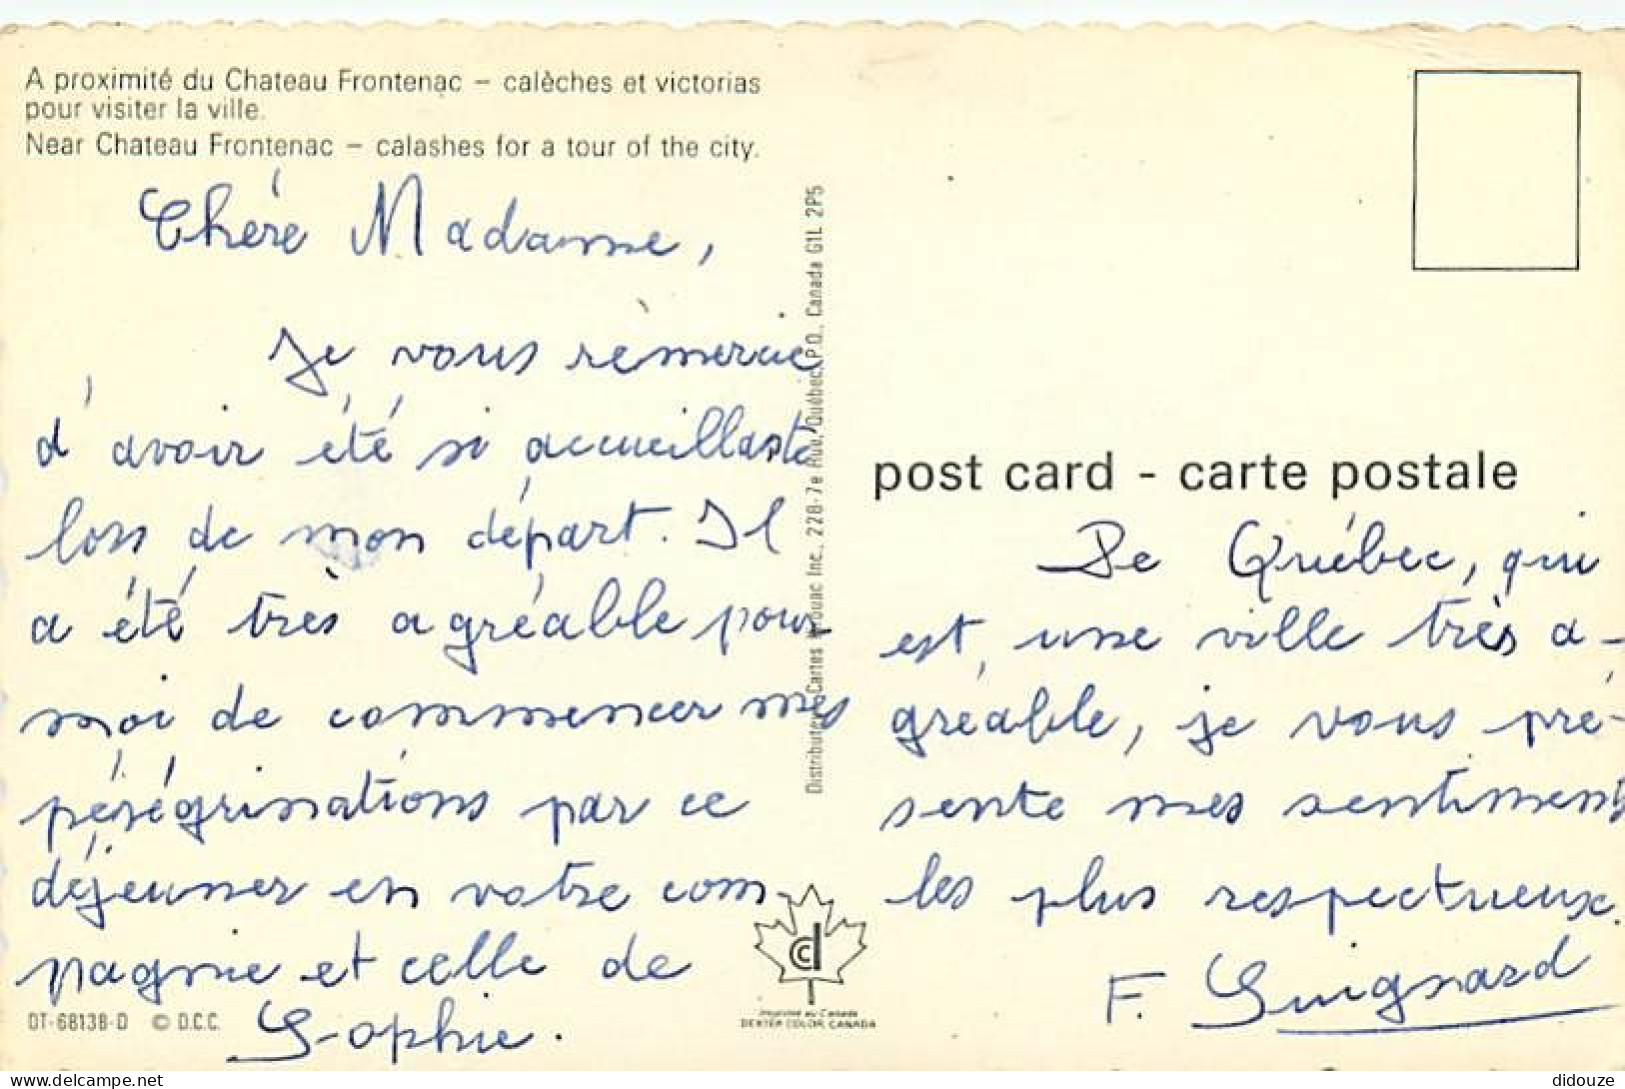 A proximité du Chateau Frontenac – calèches et victorias
pour visiter la ville.
Near Chateau Frontenac – calashes for a tour of the city.
Chère Madame,
Je vous remercie
d'avoir été si accueillante
lors de mon départ. Il
a été très agréable pour
moi de commencer mes
pérégrinations par ce
déjeuner en votre com-
pagnie et celle de
Sophie.
DT-68138-D © D.C.C.
Distributeur: Cartes Kirouac Inc., 228-7e Rue, Québec, P.Q., Canada G1L 2P5
dcc
Imprimé au Canada
DEXTER COLOR CANADA
post card - carte postale
De Québec, qui
est une ville très a-
gréable, je vous pré-
sente mes sentiments
les plus respectueux.
F. Guignard
delcampe.net
didouze